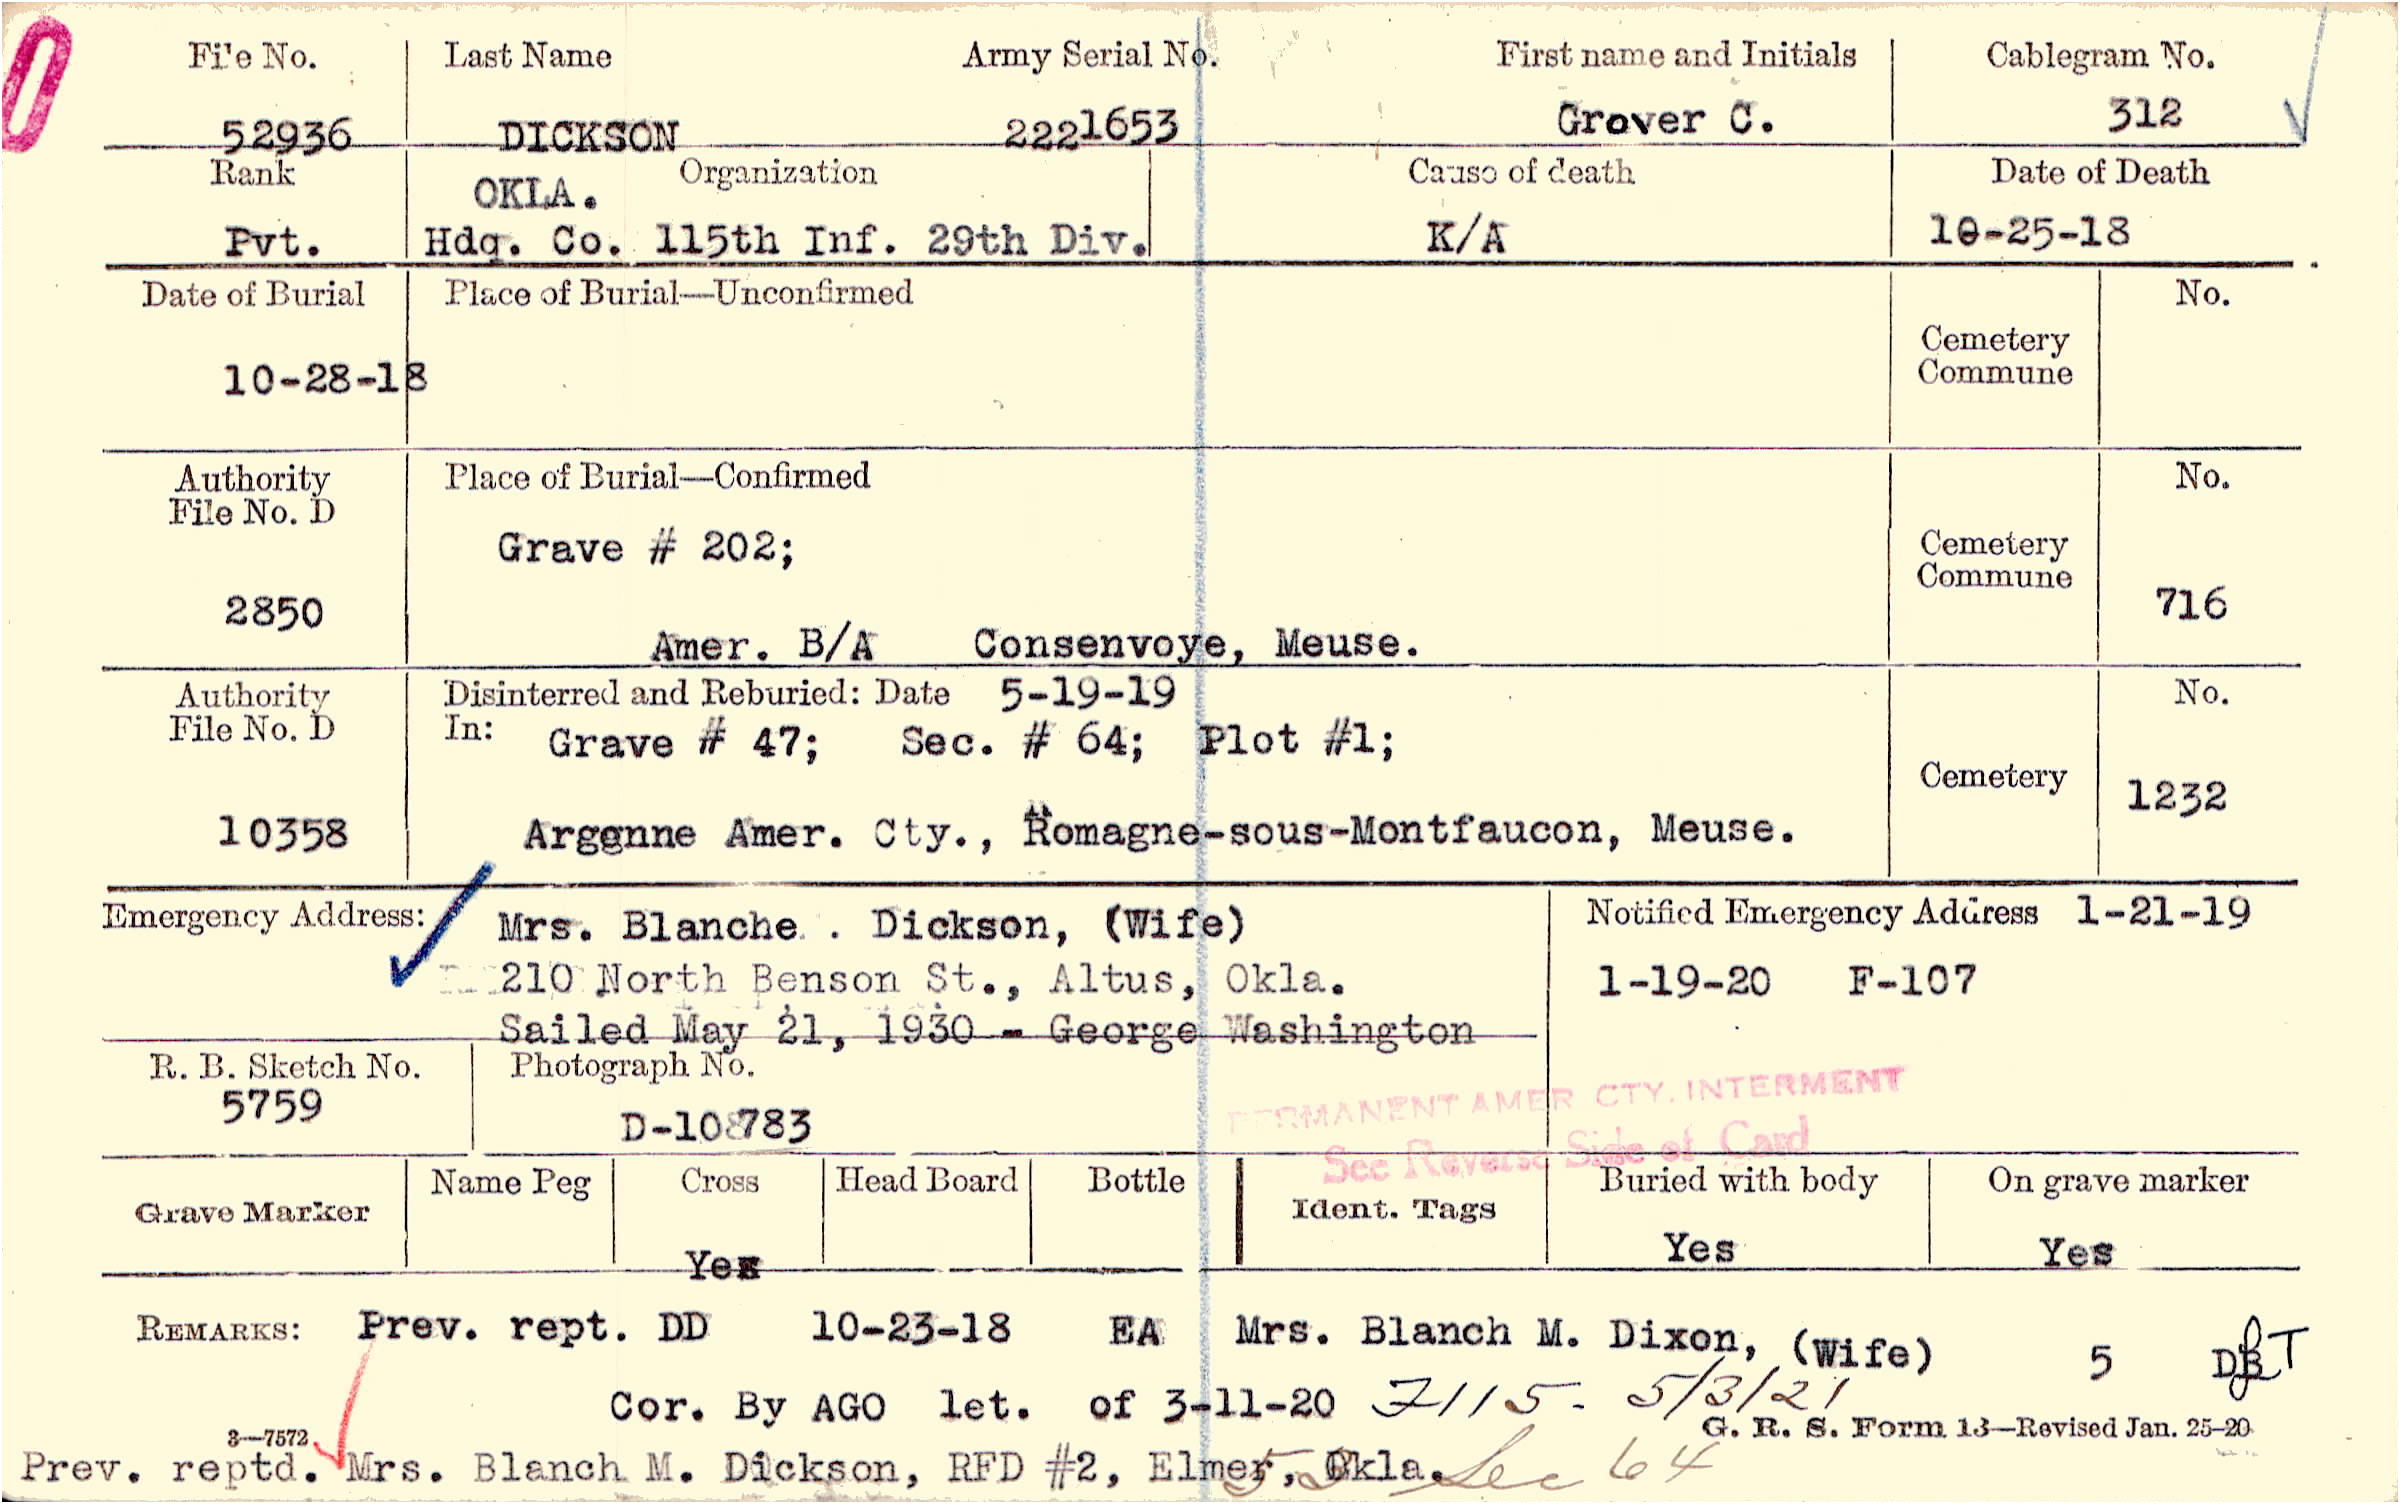 File No. Last Name Army Serial No. First name and Initials Cablegram No.
52936 DICKSON 2221653 Grover C. 312
Rank OKLA. Organization Cause of death Date of Death
Pvt. Hdq. Co. 115th Inf. 29th Div. K/A 10-25-18
Date of Burial Place of Burial—Unconfirmed No.
Cemetery
Commune
10-28-18
Authority Place of Burial—Confirmed No.
File No. D
Grave # 202; Cemetery
Commune
2850 716
Amer. B/A Consenvoye, Meuse.
Authority Disinterred and Reburied: Date 5-19-19 No.
File No. D In: Grave # 47; Sec. # 64; Plot #1;
Cemetery 1232
10358 Arggnne Amer. Cty., Romagne-sous-Montfaucon, Meuse.
Emergency Address: Mrs. Blanche . Dickson, (Wife) Notified Emergency Address 1-21-19
210 North Benson St., Altus, Okla. 1-19-20 F-107
Sailed May 21, 1930 - George Washington
R. B. Sketch No. Photograph No.
5759 D-108783
PERMANENT AMER CTY. INTERMENT
See Reverse Side of Card
Grave Marker Name Peg Cross Head Board Bottle Ident. Tags Buried with body On grave marker
Yes Yes Yes
REMARKS: Prev. rept. DD 10-23-18 EA Mrs. Blanch M. Dixon, (Wife) 5
Cor. By AGO let. of 3-11-20 7115- 5/3/21
3—7572 G. R. S. Form 13—Revised Jan. 25-20
Prev. reptd. Mrs. Blanch M. Dickson, RFD #2, Elmer, Okla. Sec 64